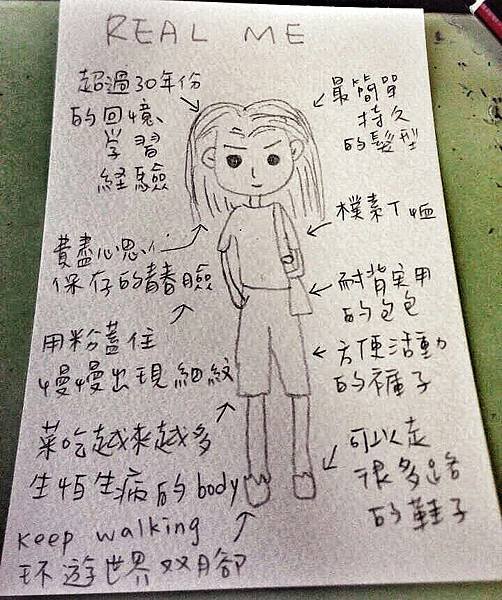 REAL ME
超過30年份
的回憶、
学習
経驗
費盡心思
保存的青春臉
用粉蓋住
慢慢出現細紋
菜吃越來越多
生怕生病的body
keep walking
环遊世界双腳
最簡單
持久
的髮型
樸素T恤
耐背实用
的包包
方便活動
的褲子
可以走
很多路
的鞋子